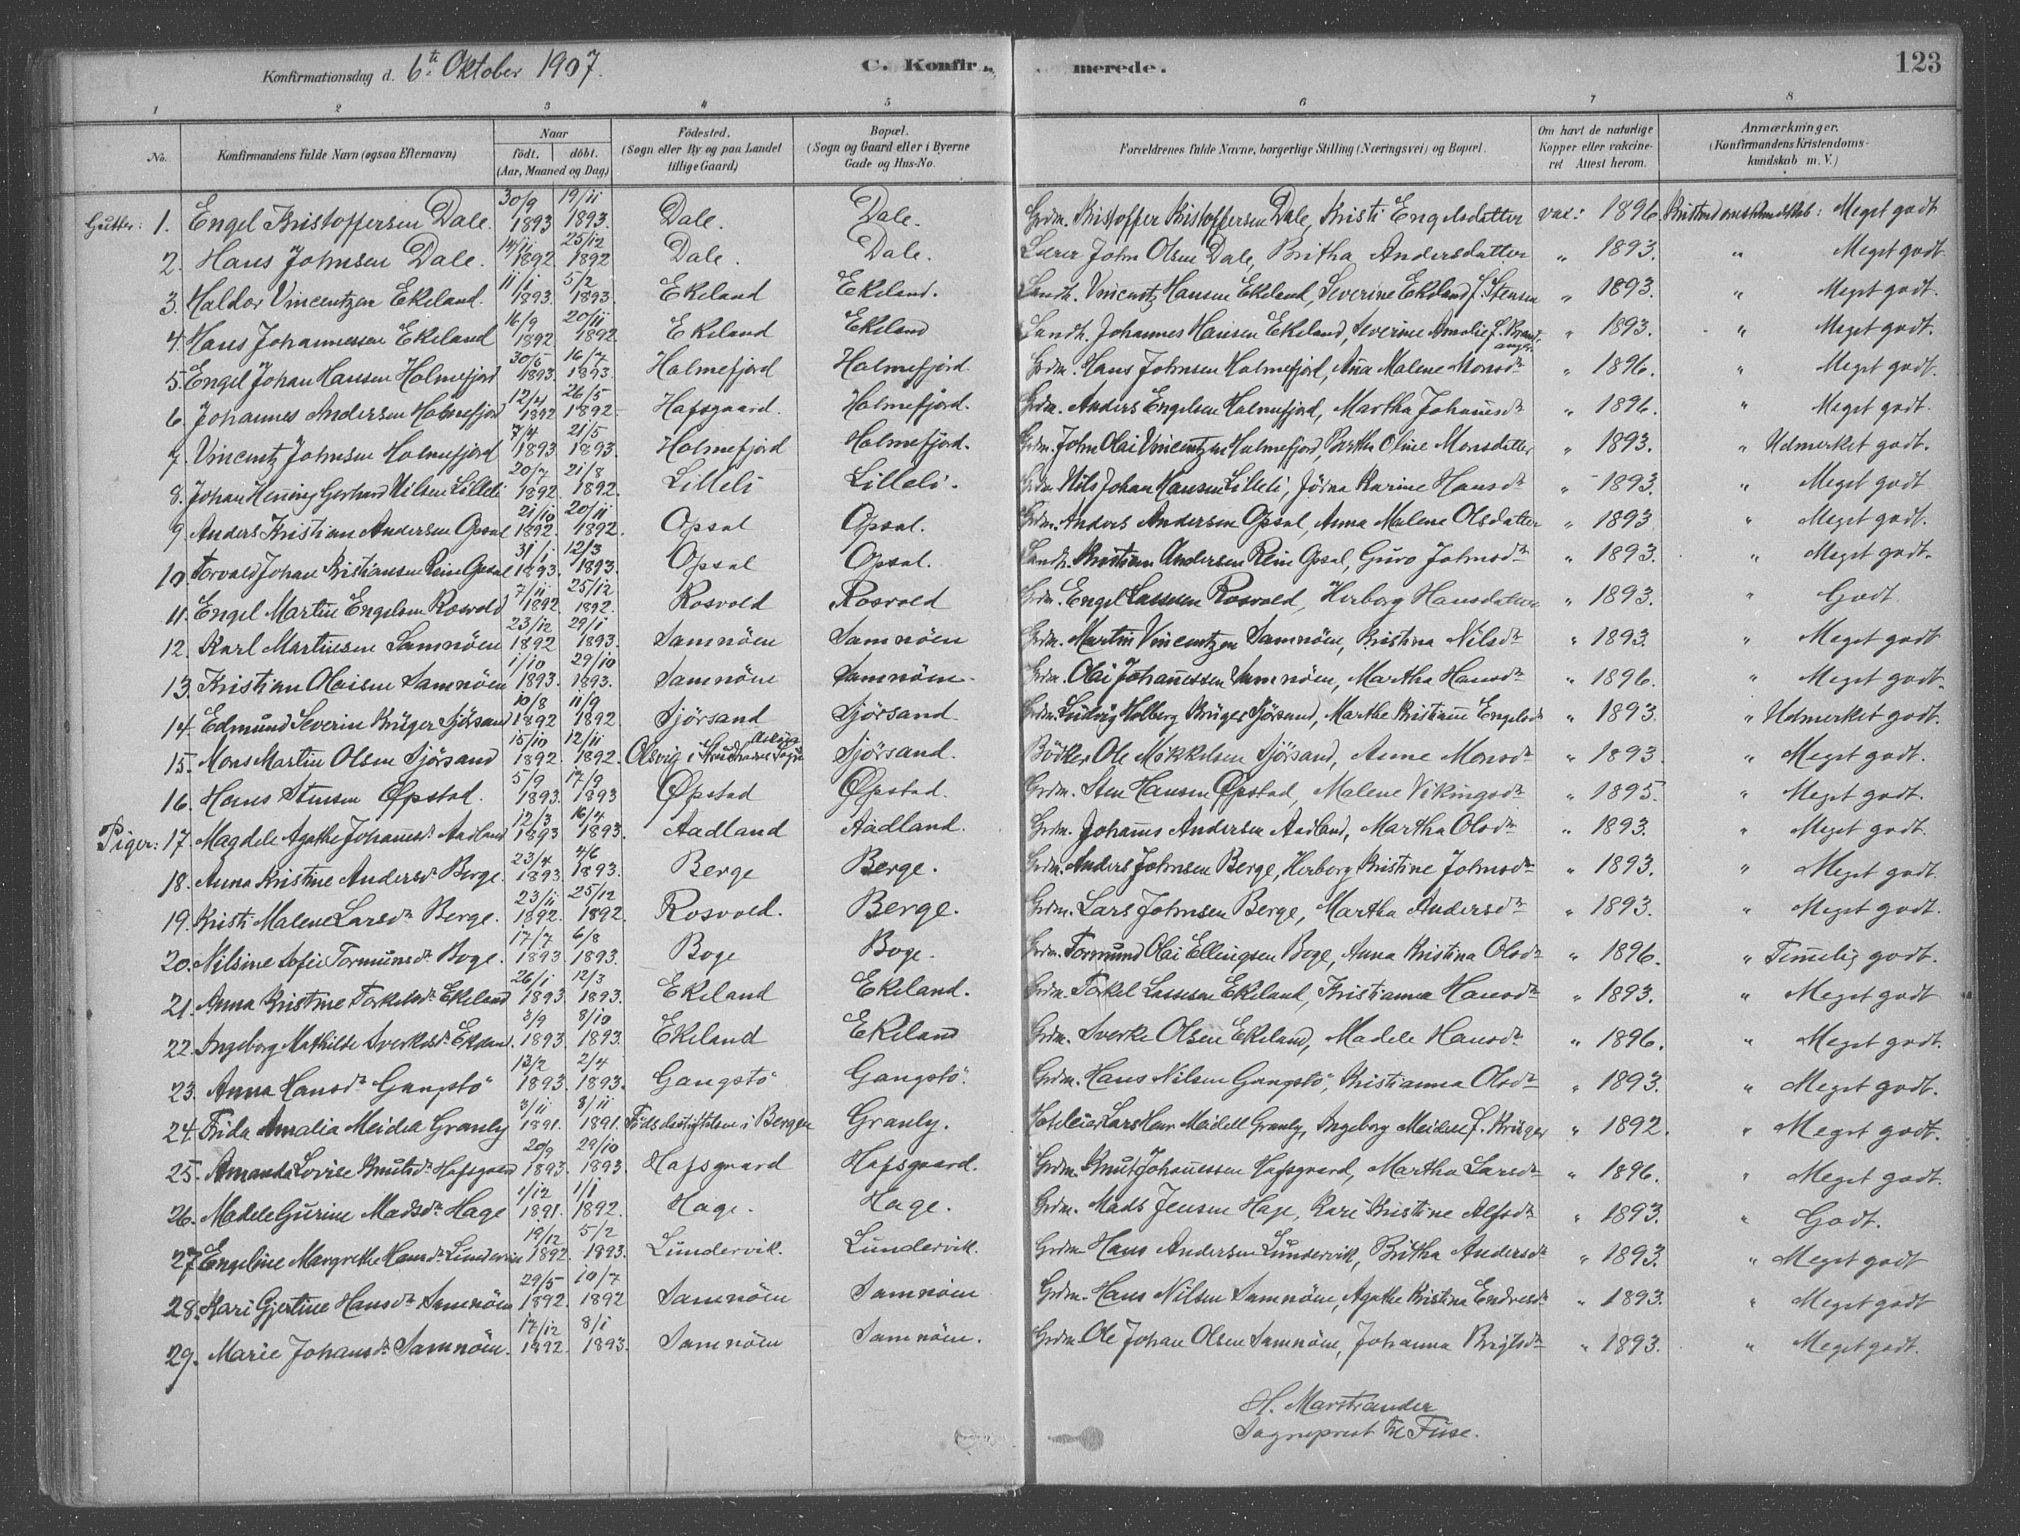 Konfirmationsdag d. 6te Oktober 1907. C. Konfir merede. 123
1 2 3 4 5 6 7 8
No. Konfirmandens fulde Navn (ogsaa Efternavn) Naar født. døbt. (Aar, Maaned og Dag) Fødested. (Sogn eller By og paa Landet tillige Gaard) Bopæl. (Sogn og Gaard eller i Byerne Gade og Hus-No. Forældrenes fulde Navne, borgerlige Stilling (Næringsvei) og Bopæl. Om havt de naturlige Kopper eller vakcineret Attest herom. Anmærkninger. (Konfirmandens Kristendomskundskab m. V.)
Gutter: 1. Engel Kristoffersen Dale. 30/9 1893 19/11 1893. Dale. Dale. Grdm. Kristoffer Kristoffersen Dale, Kristi Engelsdatter vac: 1896 Kristendomskundskab: Meget godt
2. Hans Johnsen Dale. 14/11 1892 25/12 1892 Dale. Dale. Lærer John Olsen Dale, Britha Andersdatter " 1893. " Meget godt.
3. Haldor Vincentzen Ekeland. 11/1 1893. 5/2 1893. Ekeland Ekeland. Landh. Vincentz Hansen Ekeland, Severine Ekeland f. Stensen " 1893. " Meget godt.
4. Hans Johannessen Ekeland 16/9 1892 20/11 1892 Ekeland Ekeland Landh. Johannes Hansen Ekeland, Severine Amalie f. Brandanger " 1893. " Meget godt.
5. Engel Johan Hansen Holmefjord 30/5 1893. 16/7 1893. Holmefjord Holmefjord. Grdm. Hans Johnsen Holmefjord, Ana Malene Monsdr " 1896. " Meget godt.
6. Johannes Andersen Holmefjord 12/4 1892 26/5 1892. Hafsgaard. Holmefjord. Grdm. Anders Engelsen Holmefjord, Martha Johansdr " 1896. " Meget godt.
7. Vincentz Johnsen Holmefjord 7/4 1893 21/5 1893. Holmefjord Holmefjord. Grdm. John Olai Vincentzen Holmefjord, Martha Oline Monsdatter " 1893. " Udmerket godt.
8. Johan Henning Gerhard Nilsen Lilleli 20/7 1892. 21/8 1892. Lilleli Lilleli. Grdm. Nils Johan Hansen Lilleli, Jørna Karine Hansdr " 1893. " Meget godt
9. Anders Kristian Andersen Opsal 21/10 1892. 20/11 1892. Opsal Opsal. Grdm. Anders Andersen Opsal, Anna Malene Olsdatter " 1893 " Meget godt.
10. Torvald Johan Kristiansen Rein Opsal 31/1 1893. 12/3 1893. Opsal Opsal. Landh. Kristian Andersen Rein Opsal, Guro Johnsdr " 1893. " Meget godt.
11. Engel Martin Engelsen Rosvold 7/11 1892. 25/12 1892. Rosvold Rosvold Grdm. Engel Lassesen Rosvold, Herborg Hansdatter " 1893. " Godt
12. Karl Martinsen Samnøen 23/12 1892 29/1 1893. Samnøen Samnøen Grdm. Martin Vincentzen Samnøen, Kristina Nilsdr " 1893. " Meget godt
13. Kristian Olaisen Samnøen 1/10 1893. 29/10 1893. Samnøen Samnøen. Grdm. Olai Johannessen Samnøen, Martha Hansdr " 1896. " Meget godt.
14. Edmund Severin Krüger Sjørsand 10/8 1892 11/9 1892. Sjørsand Sjørsand. Grdm. Ludvig Holberg Krüger Sjørsand, Marthe Kristiane Engelsdr " 1893. " Udmerket godt.
15. Mons Martin Olsen Sjørsand 15/10 1892. 12/11 1892. Olsvig i Askøens Sogn Sjørsand. Bødker Ole Mikkelsen Sjørsand, Anne Monsdr " 1893. " Meget godt.
16. Hans Stensen Øpstad. 5/9 1893. 17/9 1893 Øpstad Øpstad. Grdm. Sten Hansen Øpstad, Malene Vikingsdr " 1895. " Meget godt.
Piger: 17. Magdele Agathe Johannesdr Aadland 12/3 1893 16/4 1893. Aadland Aadland. Grdm. Johannes Andersen Aadland, Martha Olsdr " 1893. " Meget godt.
18. Anna Kristine Andersdr Berge. 23/4 1893. 4/6 1893. Berge Berge. Grdm. Anders Johnsen Berge, Herborg Kristine Johnsdr " 1893. " Meget godt.
19. Kristi Malene Larsdr Berge. 23/11 1892. 25/12 1892. Rosvold. Berge. Grdm. Lars Johnsen Berge, Martha Andersdr " 1893. " Meget godt.
20. Nilsine Sofie Tormunsdr Boge. 17/7 1893 6/8 1893. Boge Boge. Grdm. Tormund Olai Ellingsen Boge, Anna Kristina Olsdr " 1896. " Temmelig godt.
21. Anna Kristine Torkelsdr Ekeland 26/1 1893. 12/3 1893. Ekeland Ekeland. Grdm. Torkel Lassesen Ekeland, Kristianna Hansdr " 1893. " Meget godt
22. Ingeborg Mathilde Sverkesdr Ekeland. 3/9 1893. 8/10 1893. Ekeland Ekeland Grdm. Sverke Olsen Ekeland, Madele Hansdr " 1896. " Meget godt.
23. Anna Hansdr Gangstø 13/2 1893. 2/4 1893. Gangstø Gangstø. Grdm. Hans Nilsen Gangstø, Kristianna Olsdr " 1893. " Meget godt.
24. Frida Amalia Meidell Granly 3/11 1891. 8/11 1891. Fødselsstiftelsen i Bergen Granly. Lars Meidell Granly, Ingeborg Meidell f. Krüger " 1892. " Meget godt.
25. Amanda Lovise Knutsdr Hafsgaard 20/9 1893. 29/10 1893. Hafsgaard Hafsgaard. Grdm. Knut Johannessen Hafsgaard, Martha Larsdr " 1896. " Meget godt.
26. Madele Gurine Madsdr Hage 1/12 1891. 1/1 1892. Hage. Hage. Grdm. Mads Jensen Hage, Kari Kristine Alfsdr " 1893. " Godt.
27. Engeline Margrethe Hansdr Lundervik 19/12 1892. 5/2 1893. Lundervik. Lundervik. Grdm. Hans Andersen Lundervik, Britha Andersdr " 1893. " Meget godt
28. Kari Gjertine Hansdr Samnøen 29/5 1892. 10/7 1892 Samnøen Samnøen Grdm. Hans Nilsen Samnøen, Agathe Kristina Endresdr " 1893. " Meget godt
29. Marie Johansdr Samnøen. 17/12 1892. 8/1 1893. Samnøen Samnøen. Grdm. Ole Johan Olsen Samnøen, Johanna Brigtsdr " 1893. " Meget godt.
H. Marstrander
Sogneprest til Fuse.